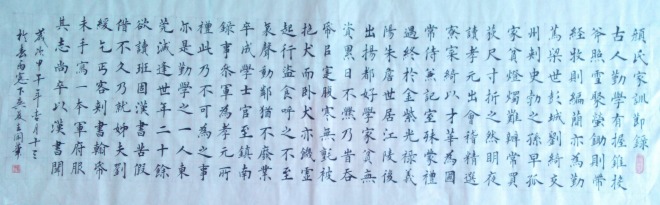 顏氏家訓節録
古人勤學有握錐投
斧照雪聚螢鋤則帶
經牧則編簡亦為勤
篤梁世彭城劉綺交
州刺史勃之孫早孤
家貧燈燭難辦常買
荻尺寸折之然明夜
讀孝元出會稽精選
寮寀綺以才華為國
常侍兼記室殊蒙禮
遇終於金紫光祿義
陽朱詹世居江陵後
出揚都好學家貧無
資累日不爨乃時吞
帋㠯寔腹寒無氈被
抱犬而卧犬亦饑虛
起行盜食呼之不至
哀聲動鄰猶不廢業
卒成學士官至鎮南
録事參軍為孝元所
禮此乃不可為之事
亦是勤學之一人東
莞臧逢世年二十餘
欲讀班固漢書苦假
借不久乃就姊夫劉
緩乞丐客刺書翰帋
末手寫一本軍府服
其志尚卒以漢書聞
歲次甲午年月十三
於